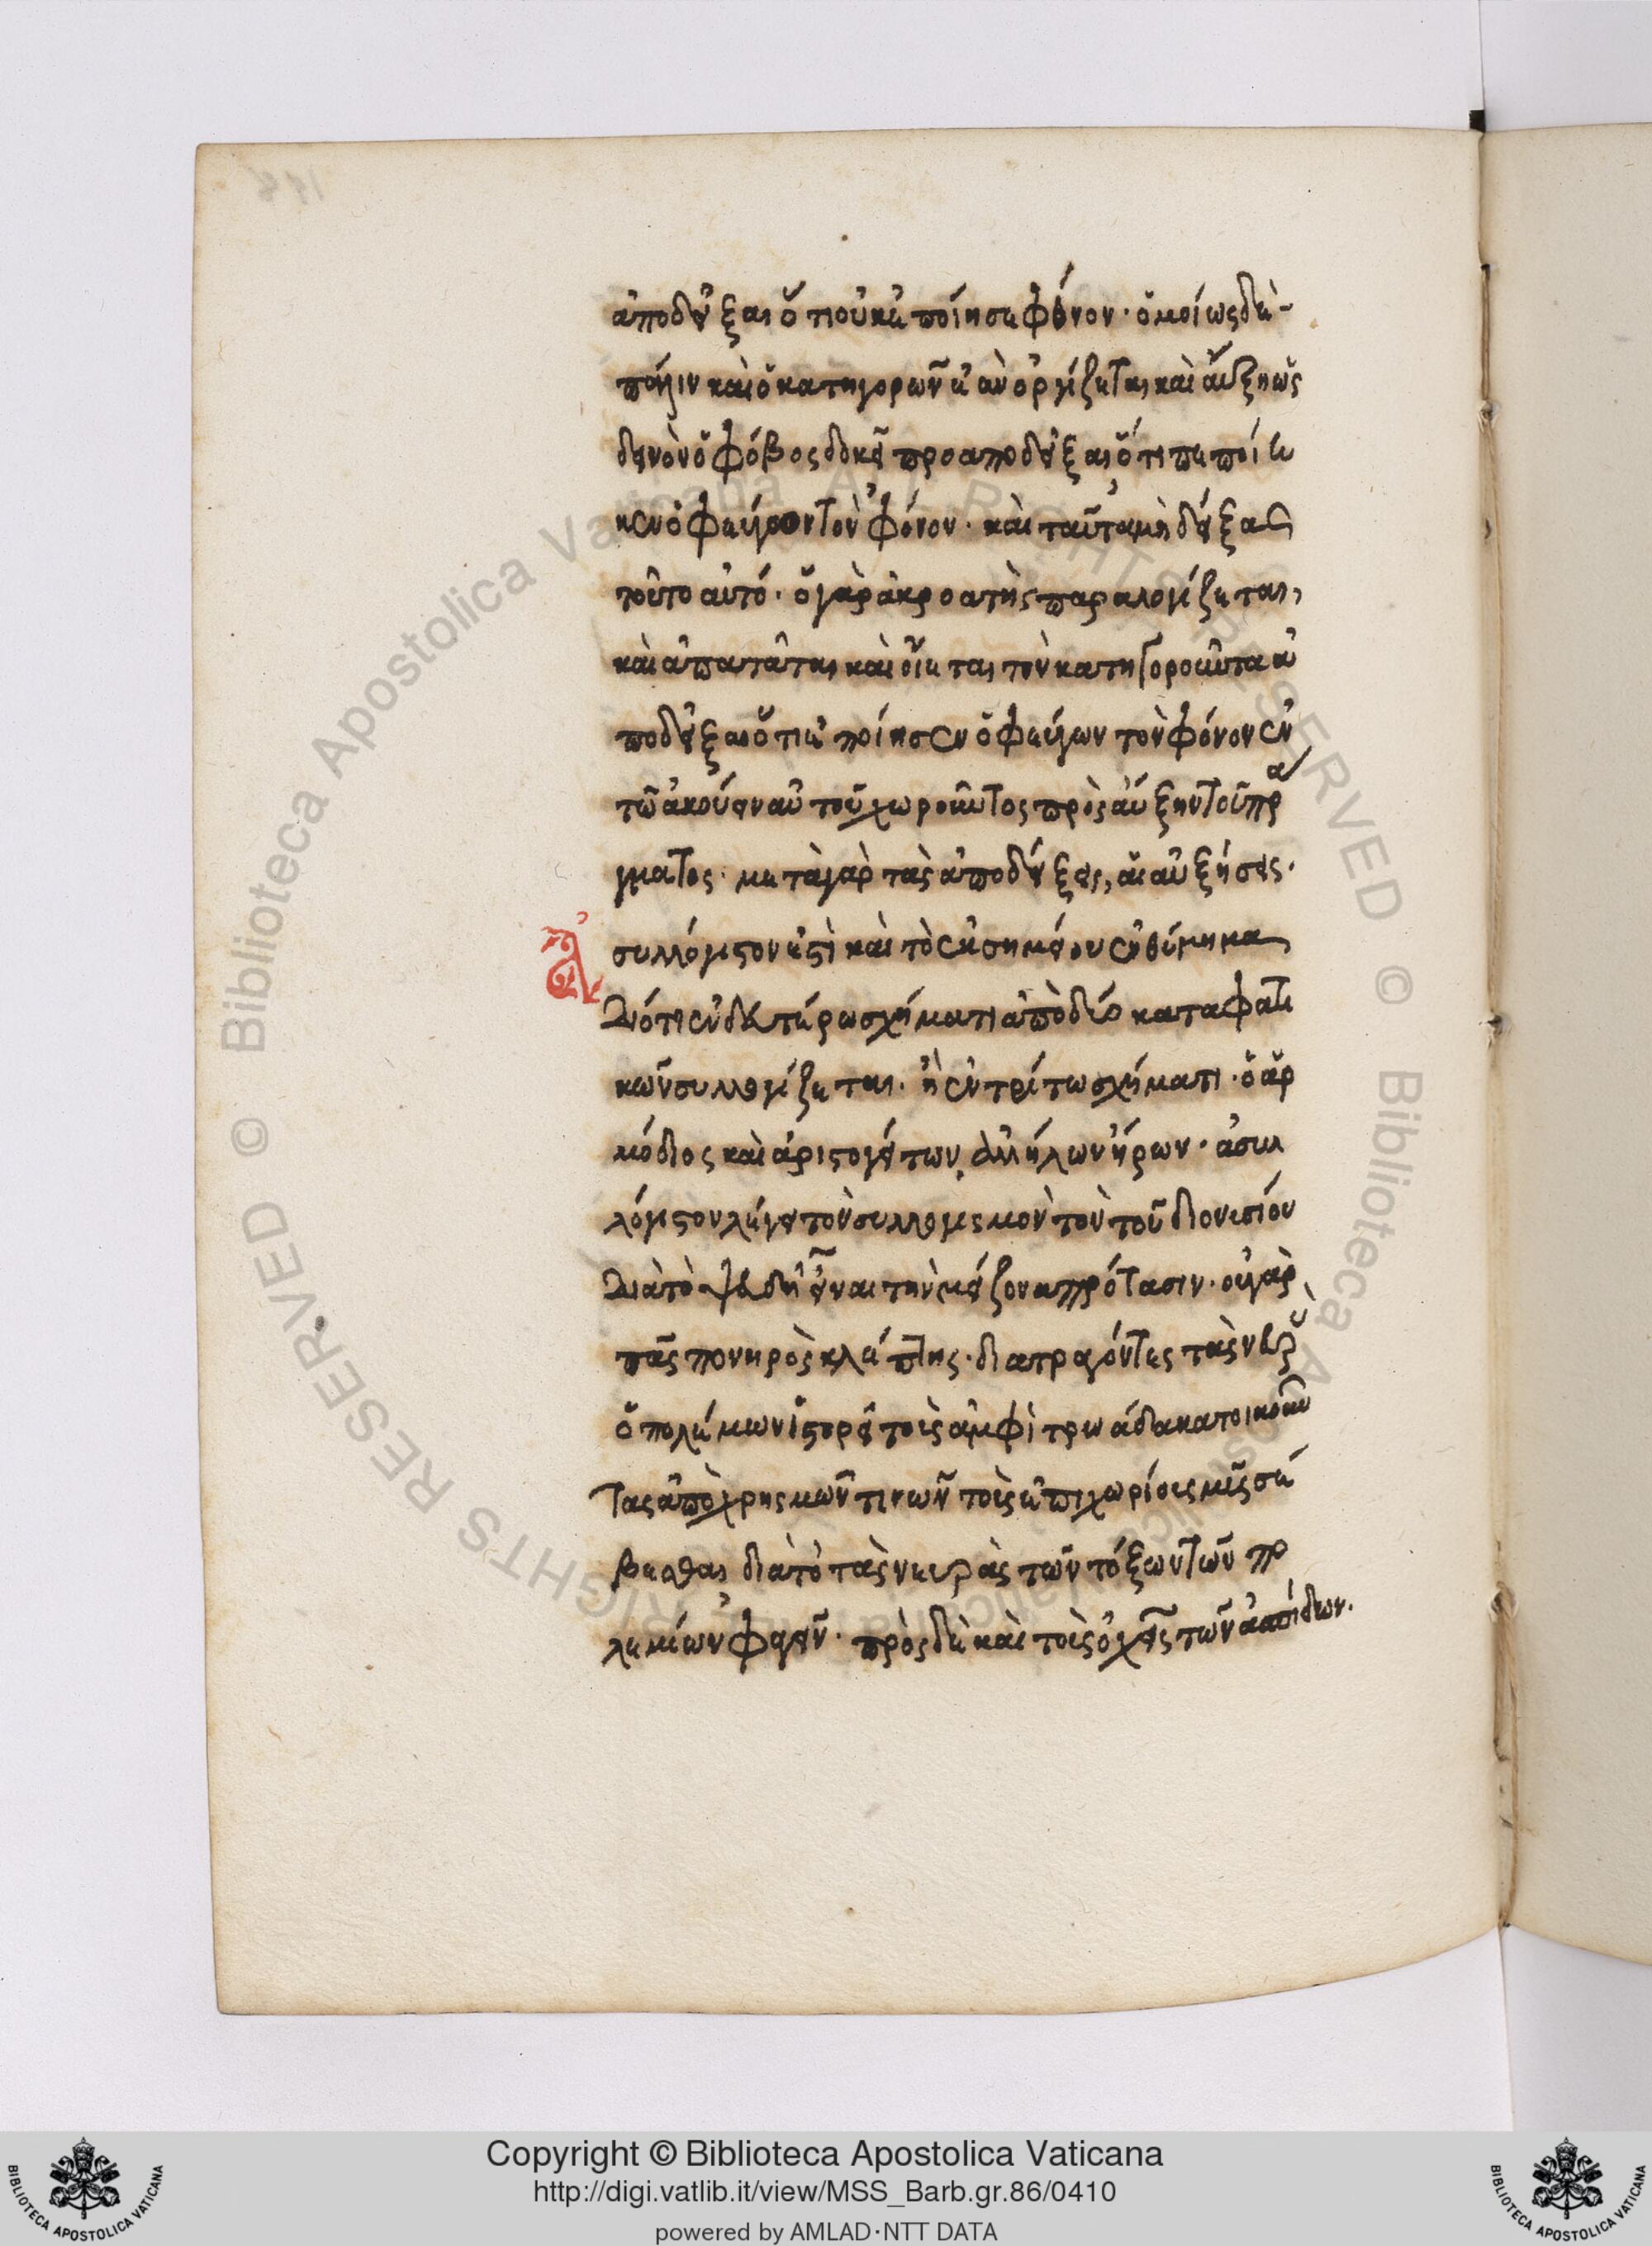 ἀποδεῖξαι ὅτι οὐκ ἐποίησε φόνον · ὁμοίως δὲ
πάλιν καὶ ὁ κατηγορῶν ἐὰν ὀργίζηται καὶ αὔξη ὡς
δεινὸν ὁ φόβος δοκεῖ προαποδεῖξαι ὅτι πεποίη
κεν ὁ φεύγων τὸν φόνον · καὶ ταῦτα μὴ δείξας
τοῦτο αὐτό · ὁ γὰρ ἀκροατὴς παραλογίζεται,
καὶ ἀπατᾶται καὶ οἴεται τὸν κατηγοροῦντα ἀ
ποδεῖξαι ὅτι ἐποίησεν ὁ φεύγων τὸν φόνον ἐν
τῶ ἀκούειν αὐτοῦ χωροῦντος πρὸς αὔξην τοῦ πρά
γματος · μετὰ γὰρ τὰς ἀποδείξεις, αἱ αὐξήσεις ·
συλλόγιστον ἐστὶ καὶ τὸ ἐκ σημείου ἐνθύμημα
Διότι ἐν δευτέρω σχήματι ἀπὸ δύο καταφατι
κῶν συλλογίζεται · ἢ ἐν τρίτω σχήματι · ὁ ἁρ
μόδιος καὶ ἀριστογείτων ἀλλήλων ἤρων · ἀσυλ
λόγιστον λέγει τὸν συλλογισμὸν τὸν τοῦ διονυσίου
Διὰ τὸ ψευδῆ εἶναι τὴν μείζονα πρότασιν · οὐ γὰρ
πᾶς πονηρὸς κλέπτης · διατραγόντες τὰς νευρ
ὁ πολέμων ἱστορεῖ τοὺς ἀμφὶ τρωάδα κατοικοῦν
τας ἀπὸ χρησμῶν τινῶν τοὺς ἐπιχωρίους μῦς σέ
βεσθαι διὰ τὸ τὰς νευρὰς τῶν τόξων τῶν πο
λεμίων φαγεῖν · πρὸς δὲ καὶ τοὺς ὀχεῖς τῶν ἀσπίδων.
Copyright © Biblioteca Apostolica Vaticana
http://digi.vatlib.it/view/MSS_Barb.gr.86/0410
powered by AMLAD·NTT DATA